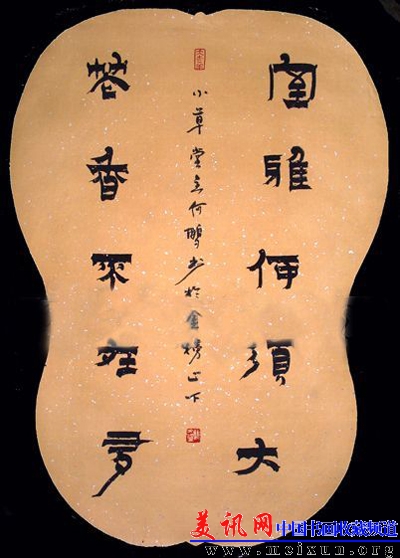 室雅何須大
小草堂主何鵬书於金榜山下
花香不在多
美讯网 中国书画收藏频道
www.meixun.org